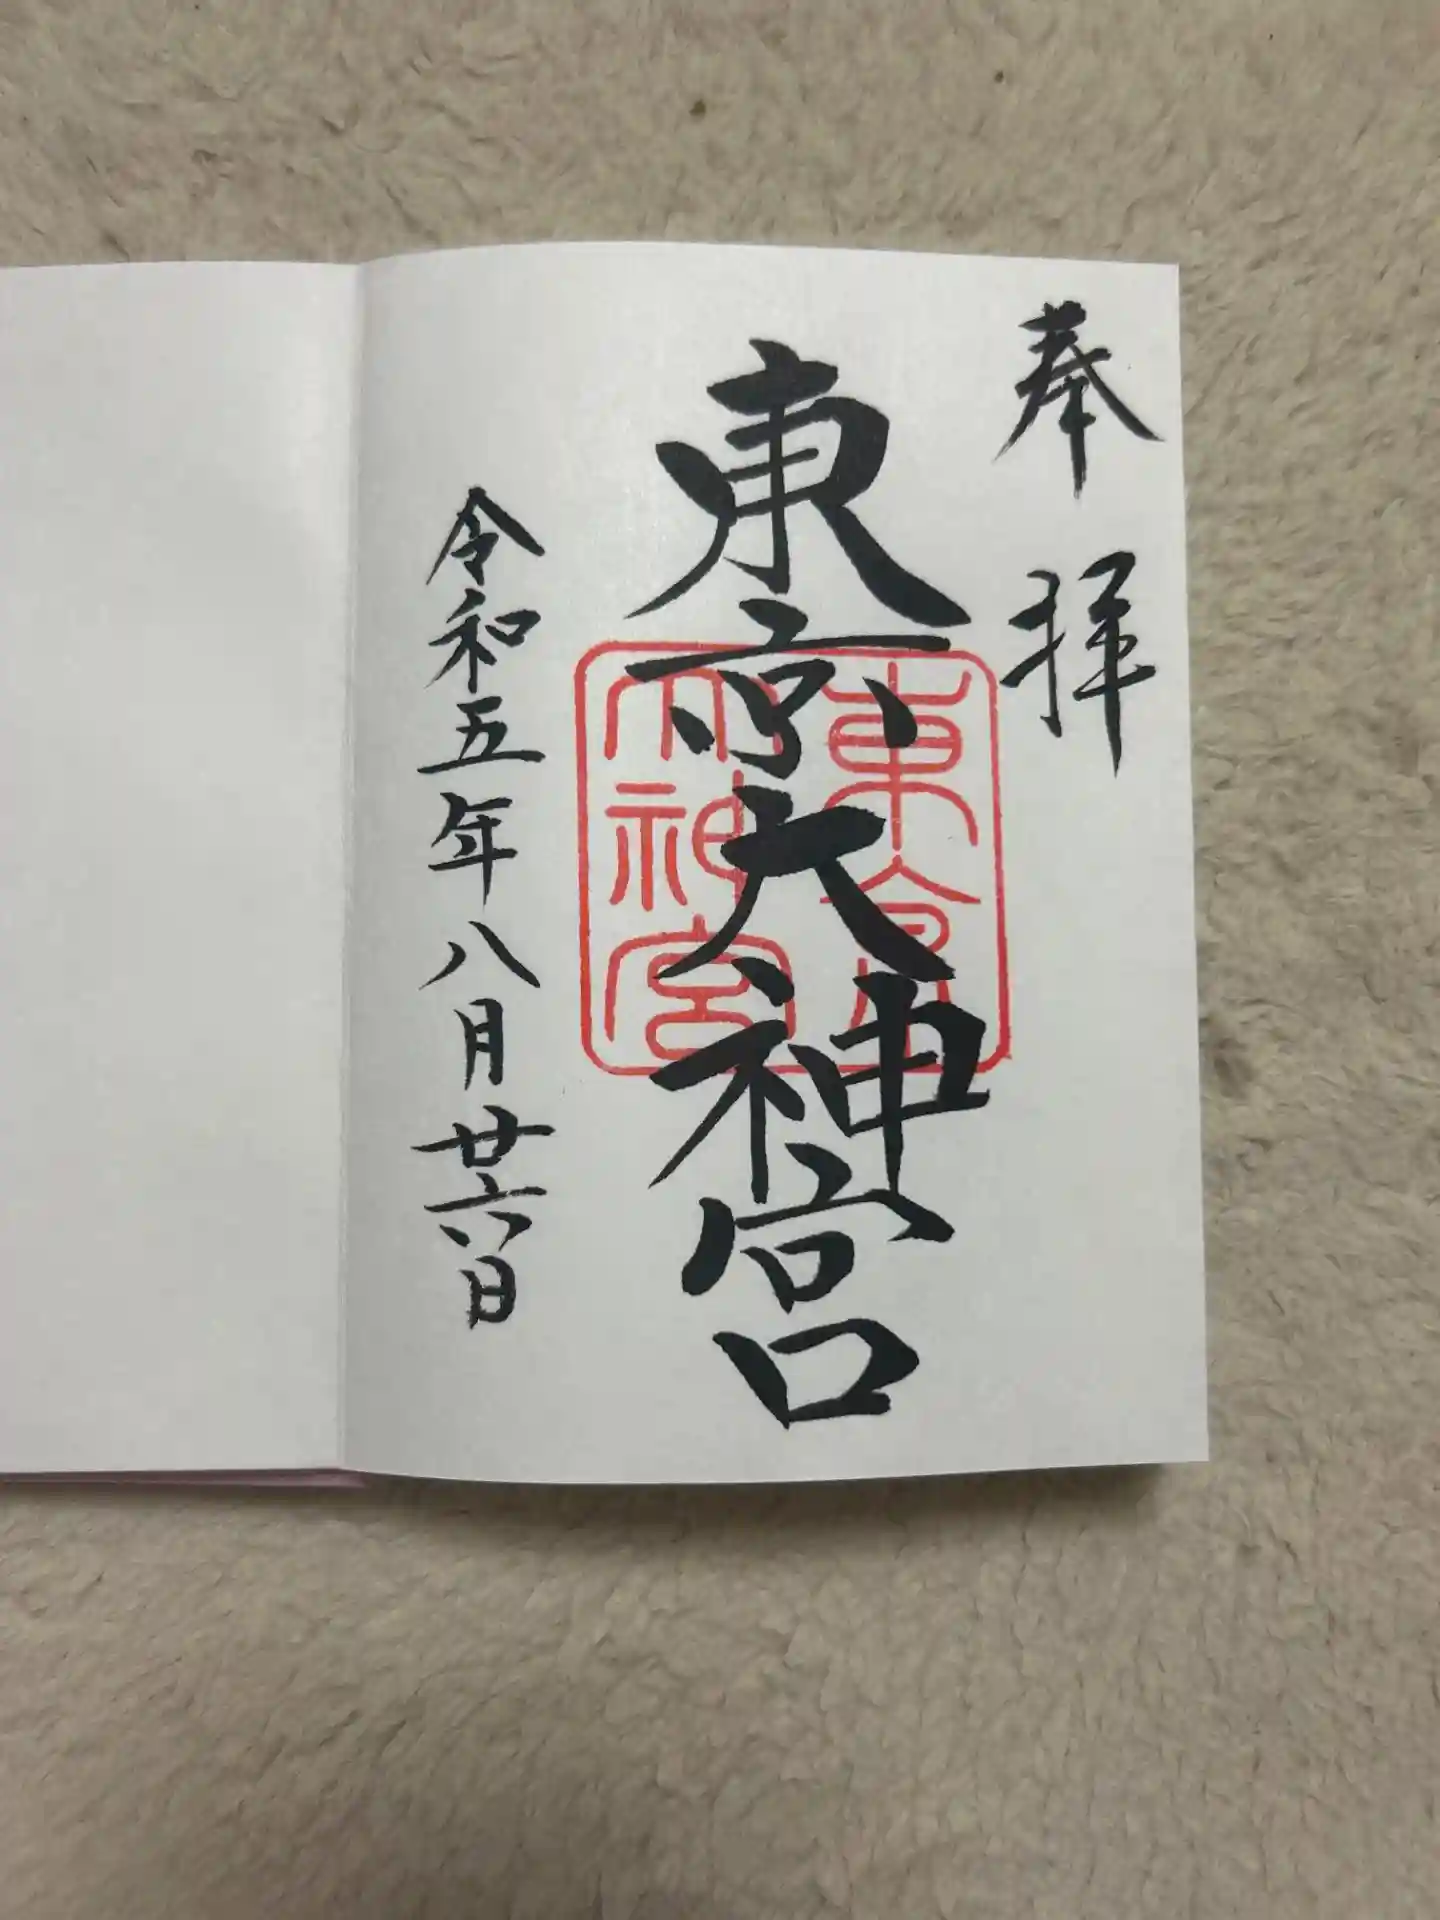 奉拝
東京大神宮
東京
大神宮
令和五年八月廿六日